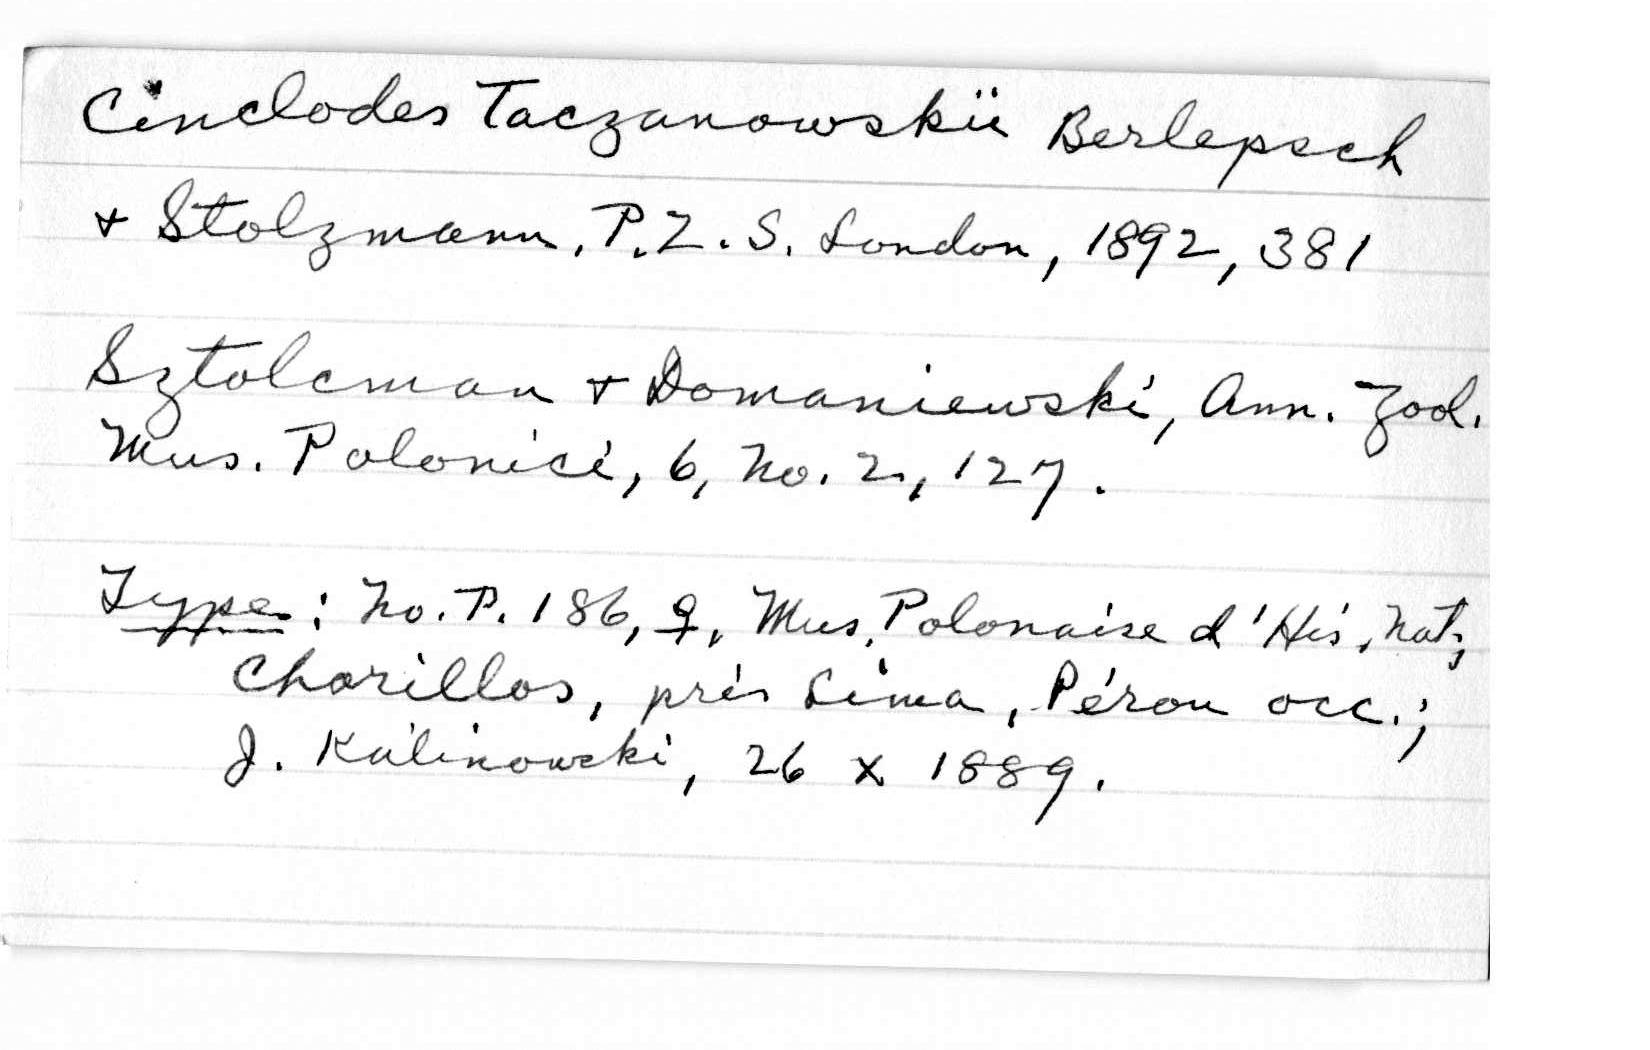 Cinclodes Taczanowskii Berlepsch
+ Stolzmann, P.Z.S. London, 1892, 381
Sztolcman + Domaniewski, Ann. Zool.
Mus. Polonici, 6, No. 2, 127.
Type: No. P. 186, ♀, Mus. Polonaise d'His. Nat;
Chorillos, près Lima, Pérou occ.;
J. Kalinowski, 26 X 1889.